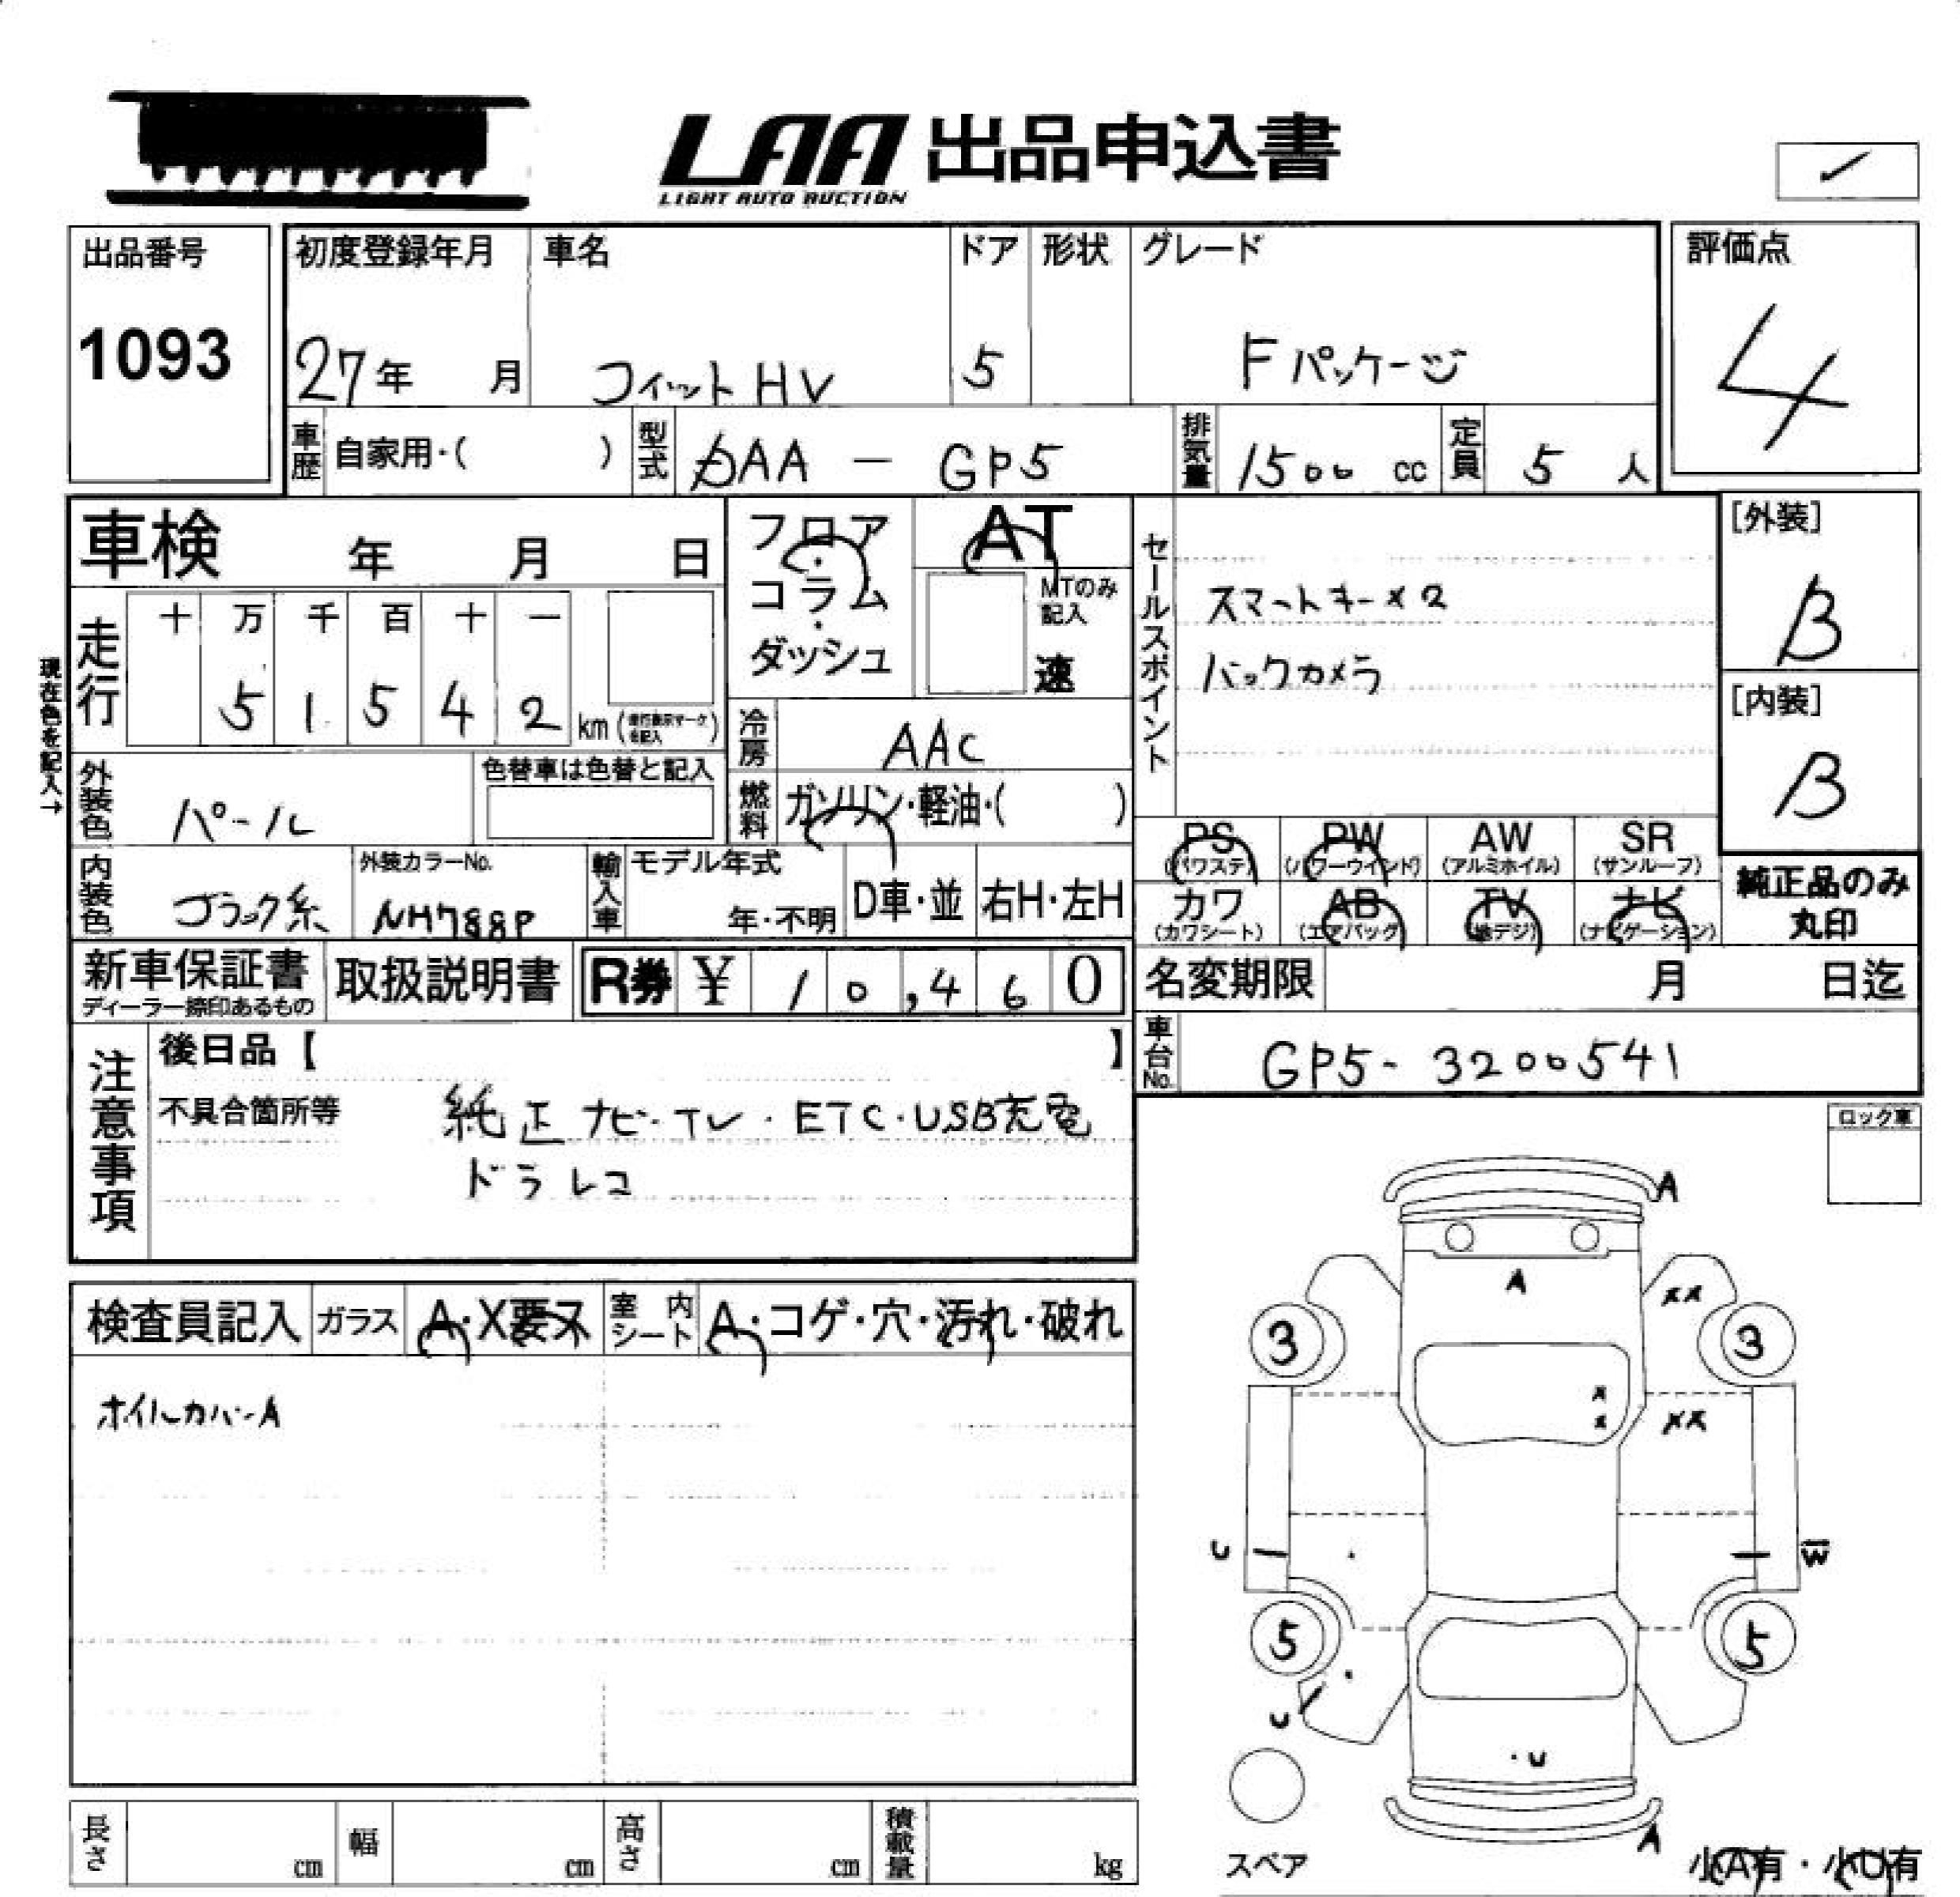 LAA 出品申込書
LIGHT AUTO AUCTION
出品番号
1093
初度登録年月
27年 月
車名
フィットHV
ドア
5
形状
グレード
Fパッケージ
評価点
4
車歴 自家用・( )
型式 DAA - GP5
排気量 1500 cc
定員 5 人
車検 年 月 日
フロア・コラム・ダッシュ
AT
MTのみ記入
速
セールスポイント
スマートキー×2
バックカメラ
[外装]
B
[内装]
B
現在色を記入→
走行
十 万 千 百 十 一
5 1 5 4 2 km
冷房 AAC
燃料 ガソリン・軽油・( )
外装色 パール
色替車は色替と記入
内装色 ブラック系
外装カラーNo.
NH788P
輸入車
モデル年式
年・不明
D車・並
右H・左H
PS (パワステ)
PW (パワーウィンド)
AW (アルミホイル)
SR (サンルーフ)
カワ (カワシート)
AB (エアバック)
TV (地デジ)
ナビ (ナビゲーション)
純正品のみ丸印
新車保証書
ディーラー捺印あるもの
取扱説明書
R券 ¥ 10,460
名変期限 月 日迄
車台No. GP5-3200541
注意事項
後日品【 】
不具合箇所等
純正ナビ・TV・ETC・USB充電
ドラレコ
ロック車
検査員記入
ガラス A・X要ヌ
室内シート A・コゲ・穴・汚れ・破れ
ホイルカバーA
A
A
XX
3
3
X
X
XX
U
W
5
5
U
・U
A
スペア
小A有・小U有
長さ cm
幅 cm
高さ cm
積載量 kg